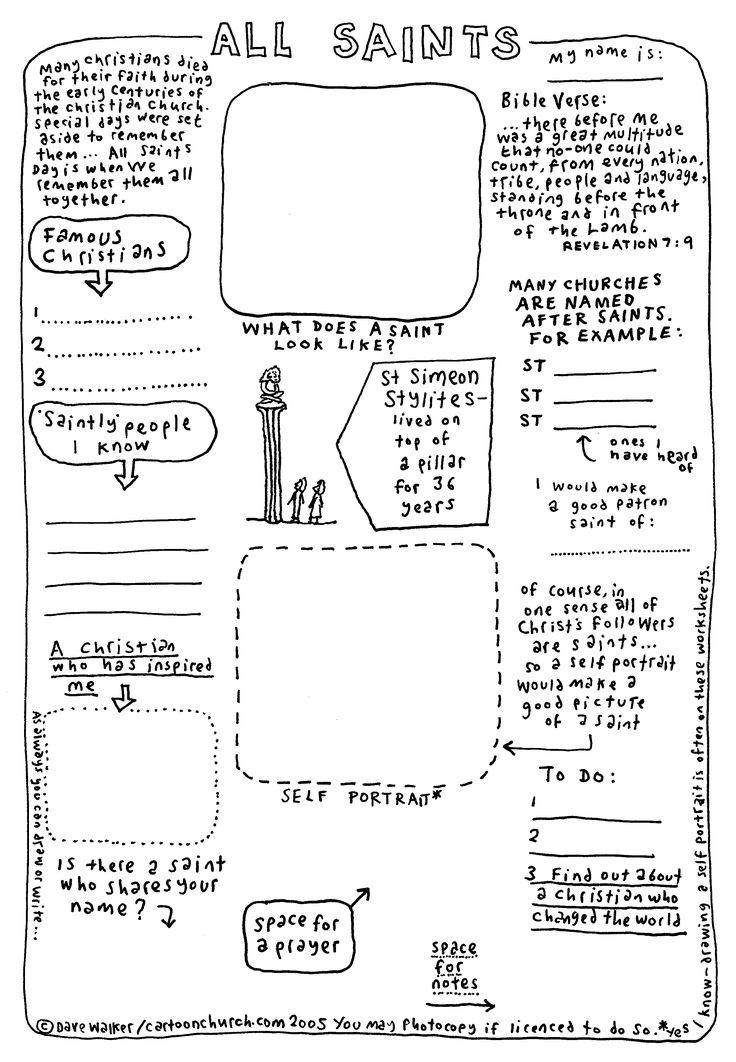 ALL SAINTS
Many Christians died
for their faith during
the early centuries of
the Christian Church.
Special days were set
aside to remember
them... All Saints
Day is when we
remember them all
together.
Famous
Christians
1
2
3
'Saintly' people
I know
A Christian
who has inspired
me
As always you can draw or write...
Is there a saint
who shares your
name?
WHAT DOES A SAINT
LOOK LIKE?
St Simeon
Stylites-
lived on
top of
a pillar
for 36
years
SELF PORTRAIT*
space for
a prayer
space
for
notes
My name is:
Bible Verse:
...there before me
was a great multitude
that no-one could
count, from every nation,
tribe, people and language,
standing before the
throne and in front
of the Lamb.
REVELATION 7:9
MANY CHURCHES
ARE NAMED
AFTER SAINTS.
FOR EXAMPLE:
ST
ST
ST
ones I
have heard
of
I would make
a good patron
saint of:
of course, in
one sense all of
Christ's followers
are saints...
so a self portrait
would make a
good picture
of a saint
TO DO:
1
2
3 Find out about
a Christian who
changed the world
© Dave Walker/cartoonchurch.com 2005 You may photocopy if licenced to do so.
*yes I know-drawing a self portrait is often on these worksheets.